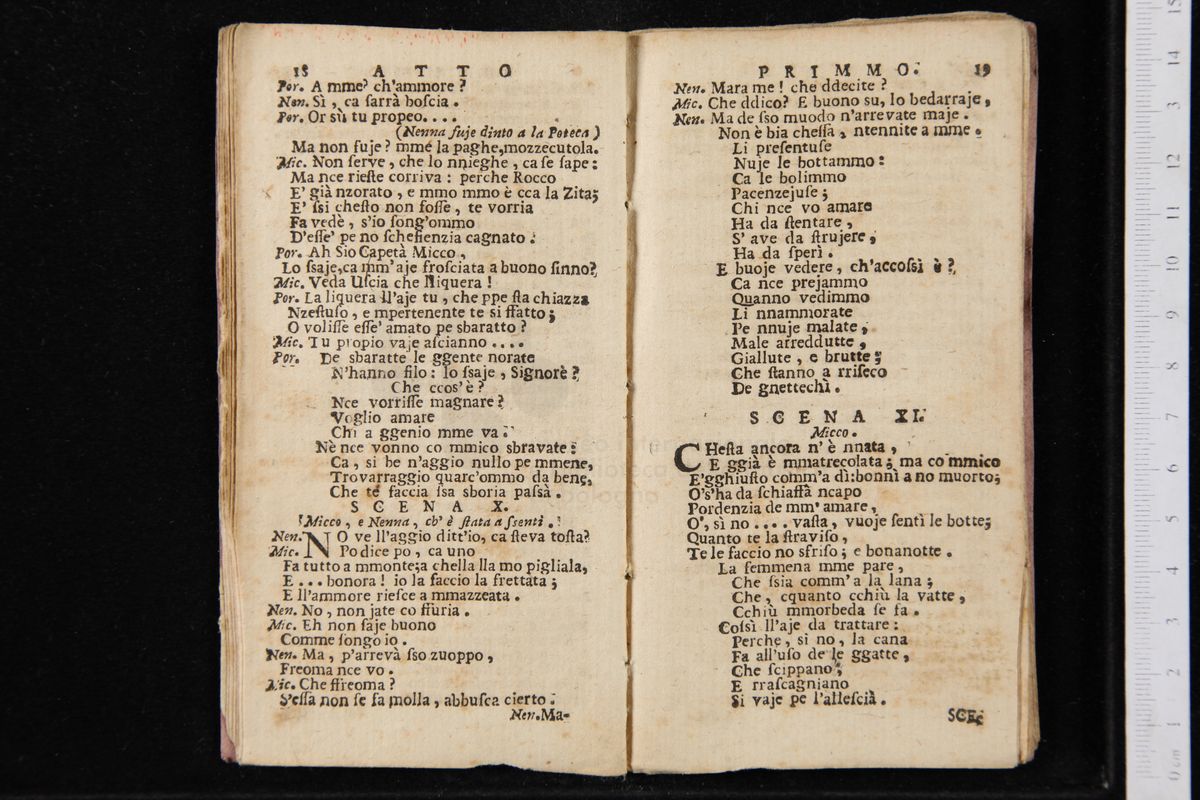 18 A T T O
Por. A mme? ch'ammore?
Nen. Sì, ca ſarrà boſcia.
Por. Or sù tu propeo....
(Nenna fuje dinto a la Poteca)
Ma non fuje? mmé la paghe,mozzecutola.
Mic. Non ſerve, che lo nnieghe, ca ſe ſape:
Ma nce rieſte corriva: perche Rocco
E' già nzorato, e mmo mmo è cca la Zita;
E' ſsi cheſto non foſſe, te vorria
Fa vedè, s'io ſong'ommo
D'eſſe' pe no ſchefienzia cagnato.
Por. Ah Sio Capetà Micco,
Lo ſsaje,ca mm'aje froſciata a buono ſinno?
Mic. Veda Uſcia che lliquera!
Por. La liquera ll'aje tu, che ppe ſta chiazza
Nzeſtuſo, e mpertenente te si ffatto;
O voliſſe eſſe' amato pe sbaratto?
Mic. Tu propio vaje aſcianno....
Por. De sbaratte le ggente norate
N'hanno filo: lo ſsaje, Signorè?
Che ccos'è?
Nce vorriſſe magnare?
Voglio amare
Chi a ggenio mme va.
Nè nce vonno co mmico sbravate:
Ca, si be n'aggio nullo pe mmene,
Trovarraggio quarc'ommo da bene,
Che te faccia ſsa sboria paſsà.
S C E N A X.
Micco, e Nenna, ch' è ſtata a ſsentì.
Nen. NO ve ll'aggio ditt'io, ca ſteva toſta?
Mic. Po dice po, ca uno
Fa tutto a mmonte;a chella lla mo pigliala,
E... bonora! io la faccio la frettata;
E ll'ammore rieſce a mmazzeata.
Nen. No, non jate co ffuria.
Mic. Eh non ſaje buono
Comme ſongo io.
Nen. Ma, p'arrevà ſso zuoppo,
Freoma nce vo.
Mic. Che ffreoma?
S'eſſa non ſe fa molla, abbuſca cierto.
Nen.Ma-
P R I M M O. 19
Nen. Mara me! che ddecite?
Mic. Che ddico? E buono su, lo bedarraje,
Nen. Ma de ſso muodo n'arrevate maje.
Non è bia cheſſa, ntennite a mme.
Li preſentuſe
Nuje le bottammo:
Ca le bolimmo
Pacenzejuſe;
Chi nce vo amare
Ha da ſtentare,
S' ave da ſtrujere,
Ha da ſperì.
E buoje vedere, ch'accoſsì è?
Ca nce prejammo
Quanno vedimmo
Li nnammorate
Pe nnuje malate,
Male arreddutte,
Giallute, e brutte;
Che ſtanno a rriſeco
De gnettechì.
S C E N A XI.
Micco.
CHeſta ancora n' è nnata,
E ggià è mmatrecolata; ma co mmico
E'gghiuſto comm'a dì:bonnì a no muorto;
O's'ha da ſchiaffà ncapo
Pordenzia de mm' amare,
O', sì no.... vaſta, vuoje ſentì le botte;
Quanto te la ſtraviſo,
Te le faccio no sfriſo; e bonanotte.
La femmena mme pare,
Che ſsia comm' a la lana;
Che, cquanto cchiù la vatte,
Cchiù mmorbeda ſe fa.
Coſsì ll'aje da trattare:
Perche, sì no, la cana
Fa all'uſo de le ggatte,
Che ſcippano;
E rraſcagniano
Si vaje pe l'alleſcià.
SCE-